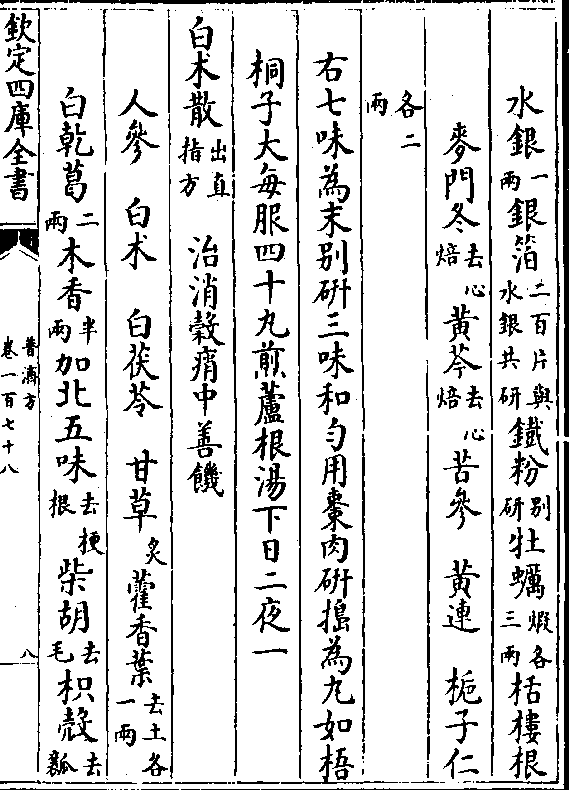 水銀一兩銀箔二百片與水銀共研鐵粉別研牡蠣煅各三兩栝樓根
麥門冬去心焙黃芩去心焙苦參 黃連 梔子仁
各二兩
右七味為末别研三味和勻用棗肉研搗為丸如梧
桐子大每服四十九煎蘆根湯下日二夜一
白术散出直指方 治消穀痟中善饑
人參 白术 白茯苓 甘草炙藿香葉去土各一兩
白乾葛二兩木香半兩加北五味去梗根柴胡去毛枳殻去瓤
欽定四庫全書
普濟方
卷一百七十八
八